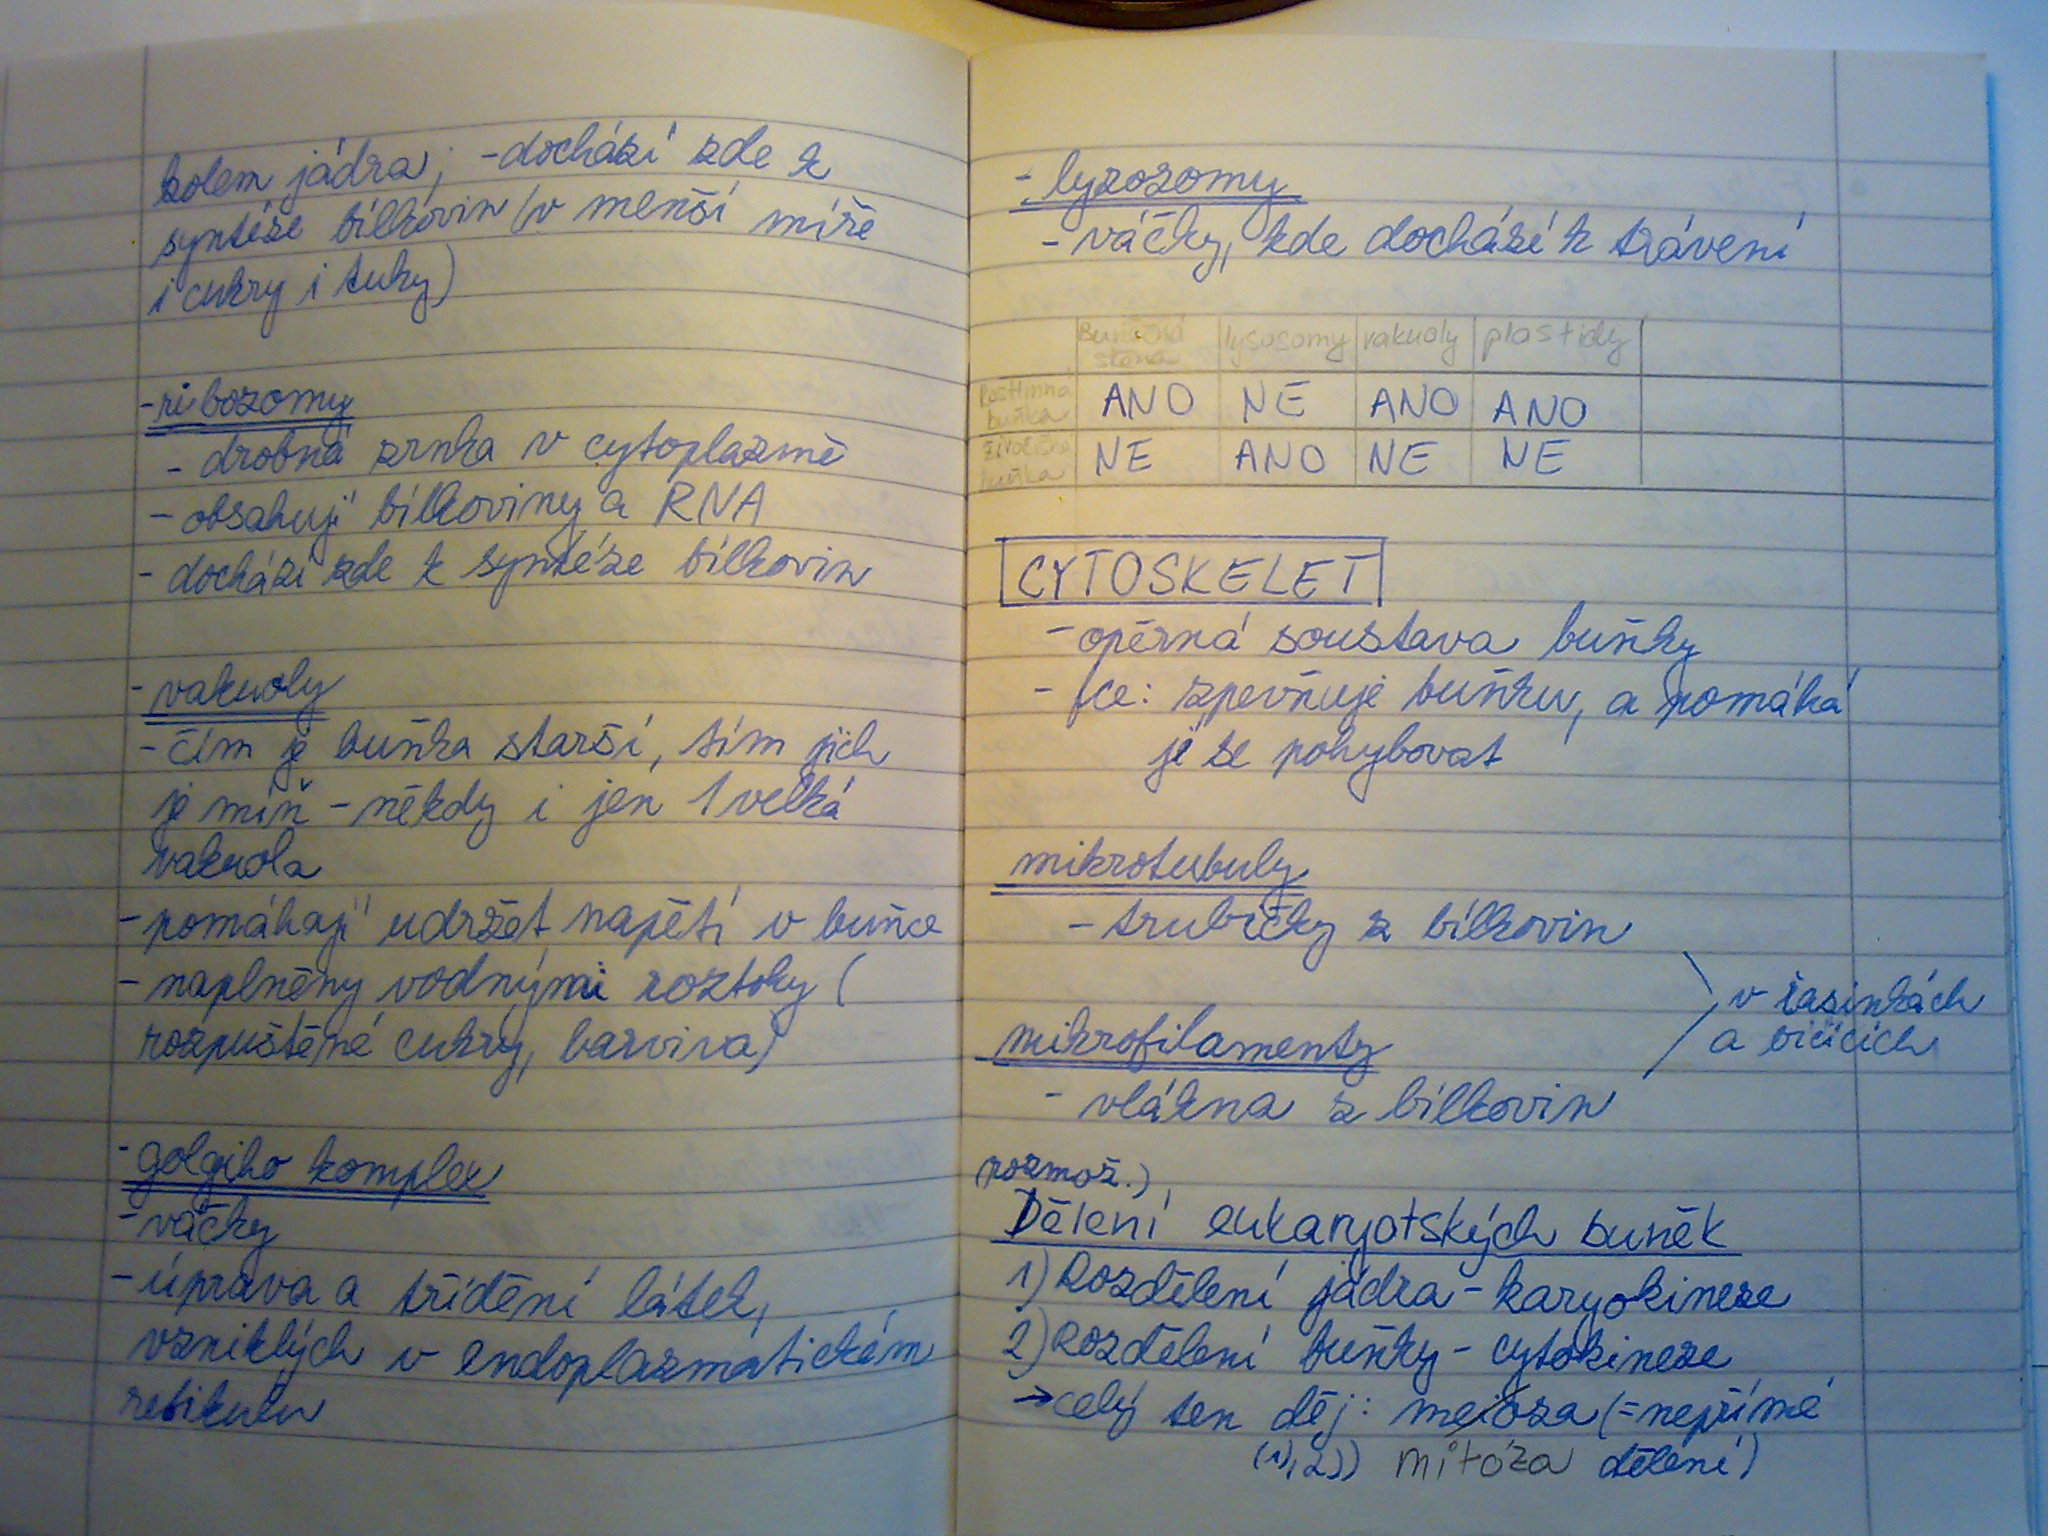 kolem jádra, - dochází zde k
syntéze bílkovin (v menší míře
i cukry i tuky)
- ribozomy
- drobná zrnka v cytoplazmě
- obsahují bílkoviny a RNA
- dochází zde k syntéze bílkovin
- vakuoly
- čím je buňka starší, tím jich
je míň - někdy i jen 1 velká
vakuola
- pomáhají udržet napětí v buňce
- naplněny vodnými roztoky (
rozpuštěné cukry, barviva)
- golgiho komplex
- váčky
- úprava a třídění látek,
vzniklých v endoplazmatickém
retikulu
- lyzozomy
- váčky, kde dochází k trávení
Buněčná stěna lysosomy vakuoly plastidy
Rostlinná buňka ANO NE ANO ANO
Živočišná buňka NE ANO NE NE
CYTOSKELET
- opěrná soustava buňky
- fce: zpevňuje buňku, a pomáhá
jí se pohybovat
mikrotubuly
- trubičky z bílkovin
v řasinkách
a bičících
mikrofilamenty
- vlákna z bílkovin
(rozmož.)
Dělení eukaryotských buněk
1) Rozdělení jádra - karyokineze
2) Rozdělení buňky - cytokineze
→ celý ten děj: meioza (= nepřímé
(1), 2)) mitóza dělení)